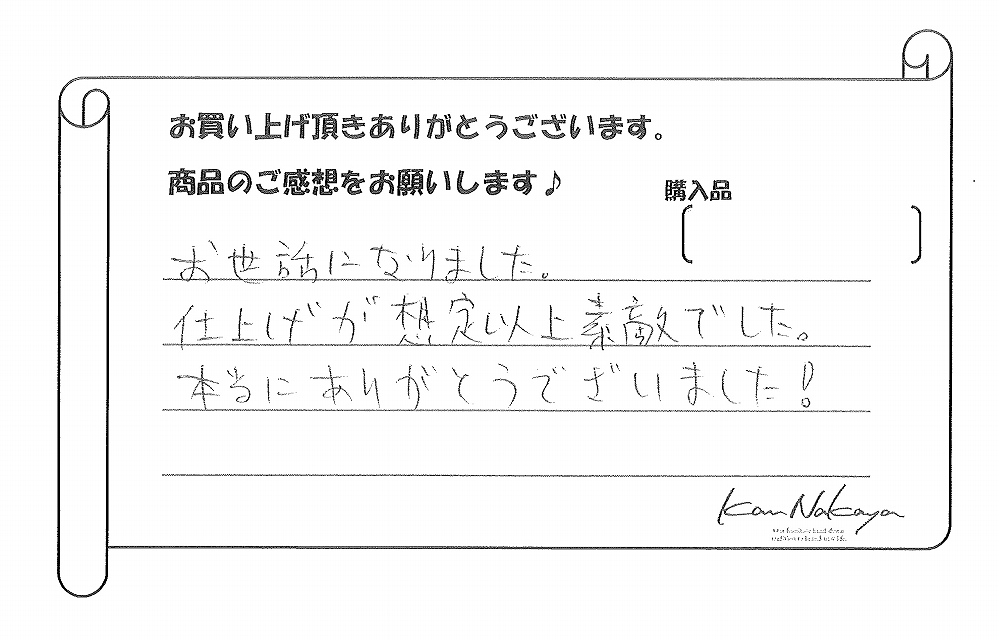 お買い上げ頂きありがとうございます。
商品のご感想をお願いします♪
購入品
お世話になりました。
仕上げが想定以上素敵でした。
本当にありがとうでざいました!
Kan Nakaya